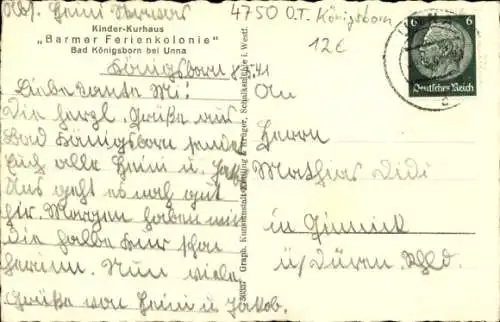 Abs. Heini
4750 O.T. Königsborn
12 €
Kinder-Kurhaus
„Barmer Ferienkolonie"
Bad Königsborn bei Unna
Königsborn 41
Liebe Tante Mi!
Die herzl. Grüße aus
Bad Königsborn sendet
Euch alle Heini u. Jakob
Uns geht es noch gut
hir. Morgen haben wir
die halbe Kur schon
herum. Nun viele
Grüße von Heini u. Jakob.
Graph. Kunstanstalt Kettling & Krüger, Schalksmühle i. Westf.
6 6
Deutsches Reich
An
Herrn
Mathias
in Ginnick
ü/Düren. Rhld.